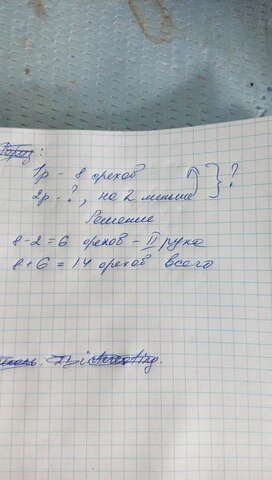 1р - 8 орехов
2р - ?, на 2 меньше } ?
Решение
8-2=6 орехов - II рука
8+6=14 орехов всего